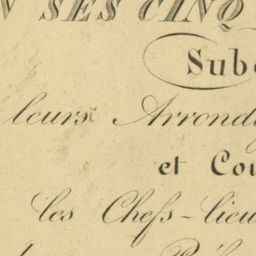 N SES CINQ
Sub
leurs Arrond
et Cou
les Chefs-lieu